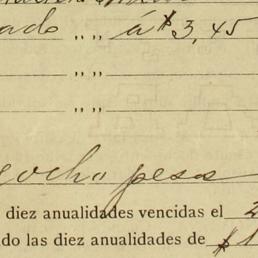 ado ,, ,, á $ 3,45
,, ,,
,, ,,
ocho pesos
diez anualidades vencidas el 2
do las diez anualidades de $ 1